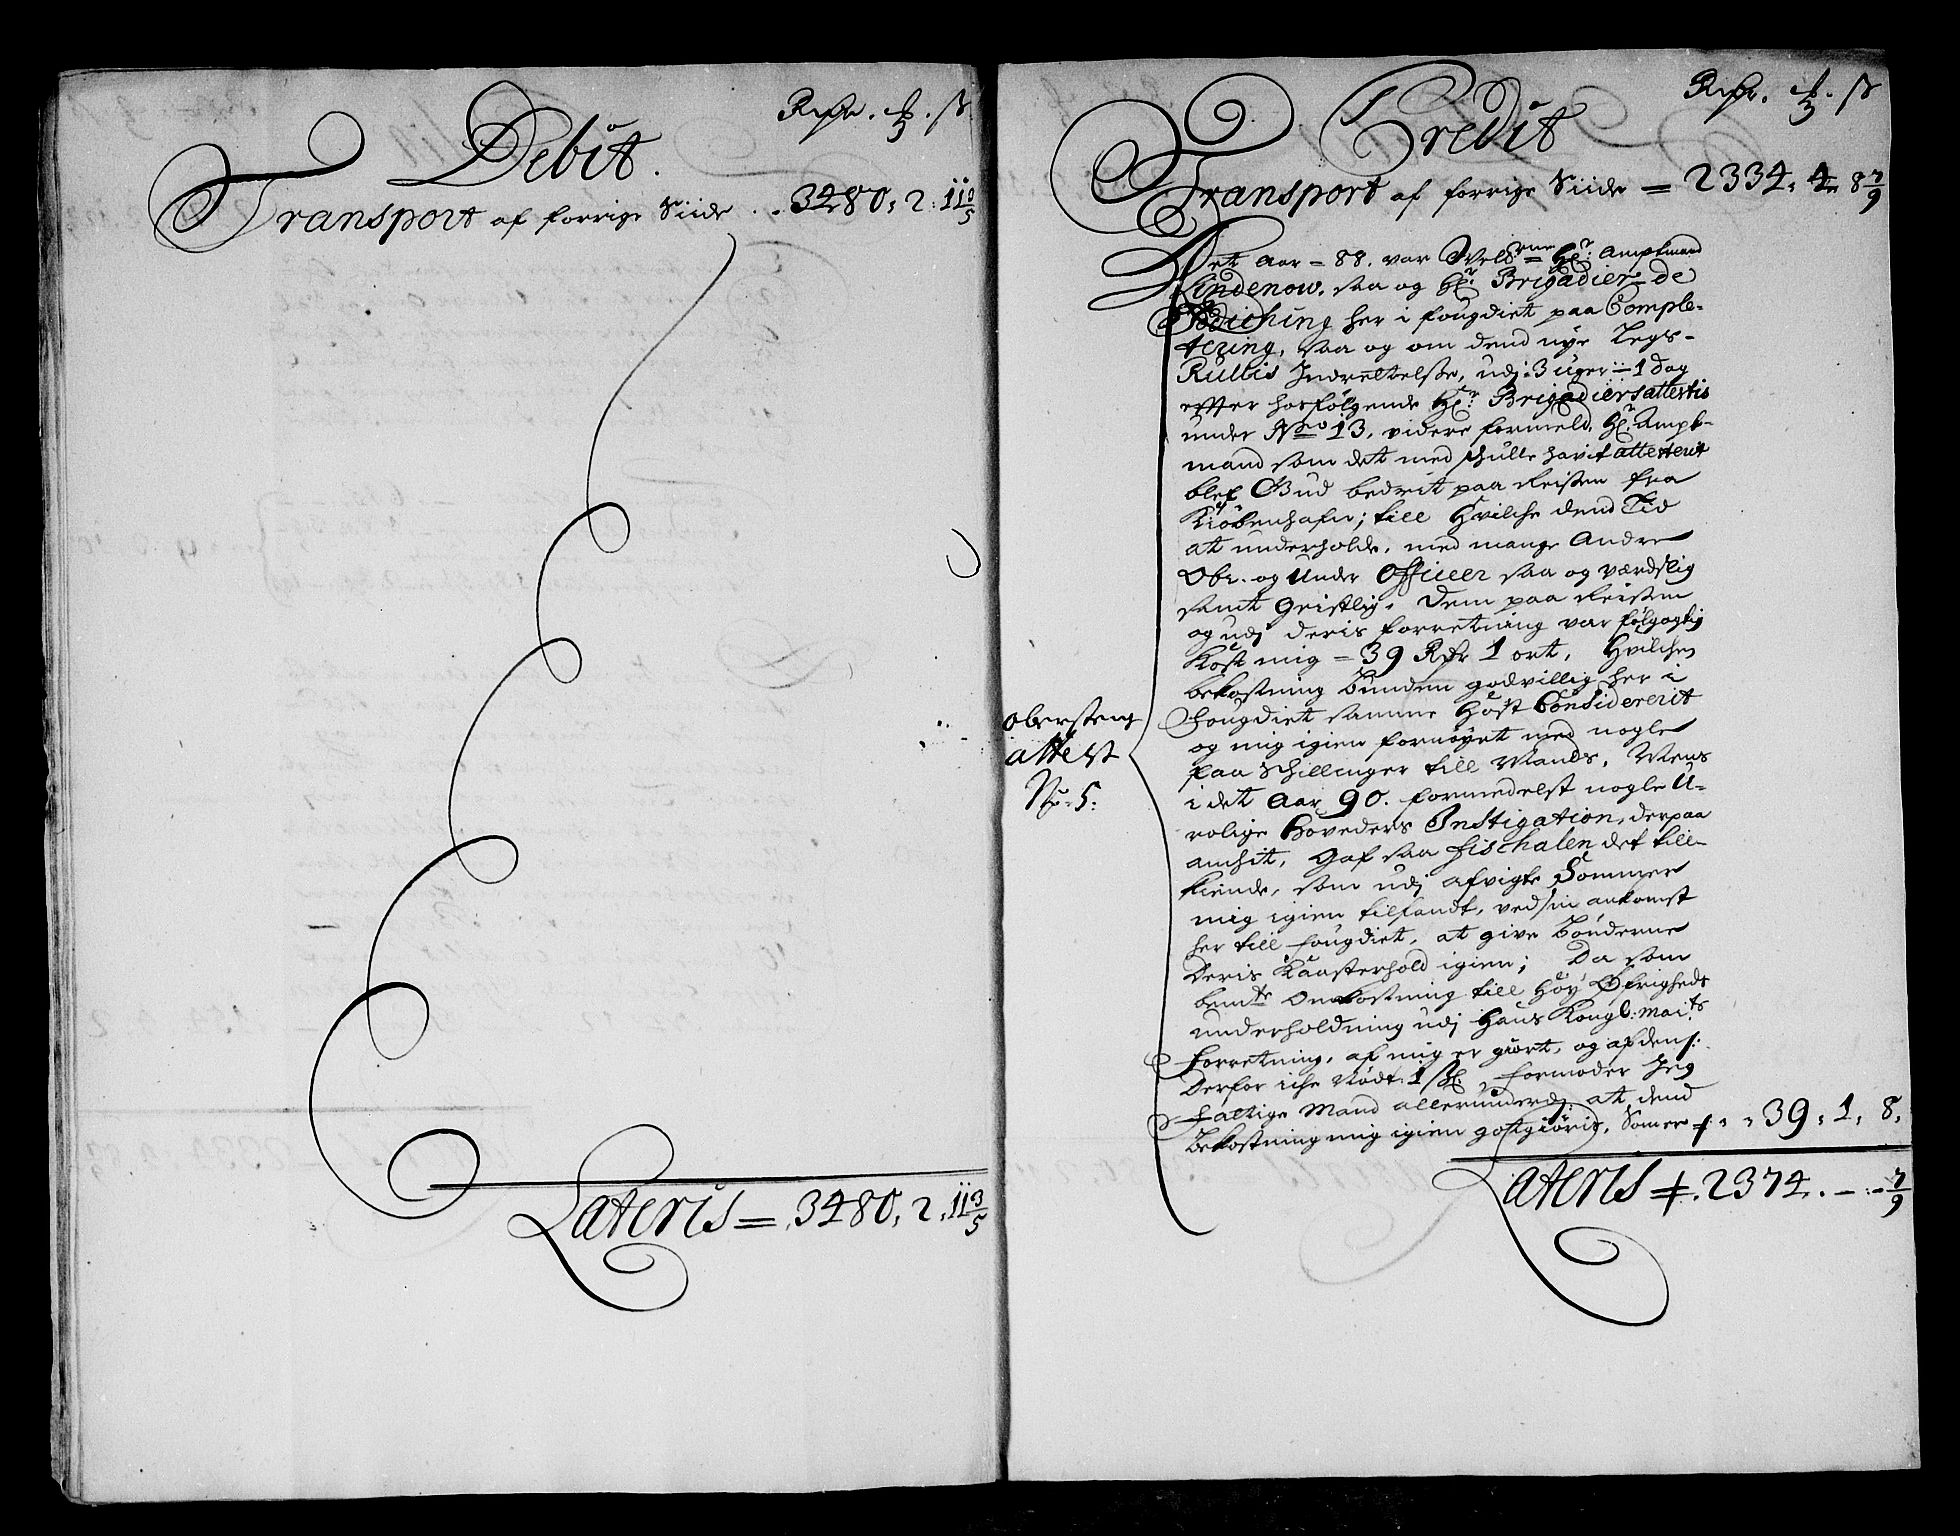 Debit.
Rdr. ₰. ß
Transport af forrige Siide . . 3480, 2: 11 3/5
Lateris = . 3480, 2, 11 3/5
Credit
Rdr. ₰. ß
Transport af forrige Siide = 2334. 4. 8 7/9
Det Aar = 88. var Hr: Amptmand
Lindenow. saa og Hr: Brigadier de
her i fougdiet paa Comple-
tering, saa og om dend nye Legs-
Rullis Indrettelse, udj 3 uger – 1 dag
effter hosfølgende Hr: Brigadiers attestis
under No 13. videre formeld. Hr: Ampt-
mand som det med skulle havt attesterit
blef Bud bedrit paa Reisen fra
Kiøbenhafn; till Hvilche dend Tid
at underholde, med mange Andre
Obr. og Under Officeer saa og værdslig
samt geistlig, dem paa Reisen
og udj deris forretning var følgagtig
Kost mig = 39 Rdr 1 ort, Hvilchen
bekostning bunden godvillig her i
fougdiet samme Høst Considererit
og mig igien fornøyet med nogle
faa Schillinger till Mands, Mens
i det Aar 90. formedelst nogle U-
rolige hoveders Instigation, derpaa
anchit, gaf saa fischalen det till-
kiende, som udj afvigte Sommer
mig igien tilfandt, ved sin ankomst
her till fougdiet, at give bønderne
deris igien; Da som
bemte Omkostning till Høy Øfrigheds
underholdning udj Hans Kongl: Maits
forretning, af mig er giort, og af den
derfor iche Nødt: 1 ßl. formoder Jeg
fattige Mand allerunderd: at dend
bekostning mig igien gotgiøris, Som er = . . 39, 1, 8,
obersteng
attest
No: 5:
Lateris = . 2374. – . – 7/9